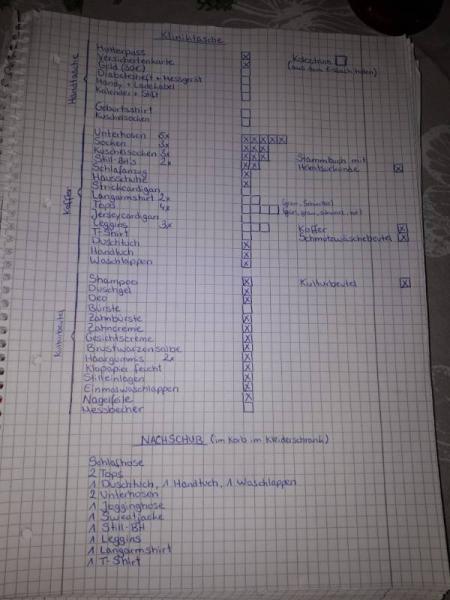 Kliniktasche
Handtasche
Mutterpass
Versichertenkarte
Geld (50€)
Diabetesheft + Messgerät
Handy + Ladekabel
Kalender + Stift
Kolostrum
(aus dem Eisfach holen)
Geburtsshirt
Kuschelsocken
Koffer
Unterhosen 5x
Socken 3x
Kuschelsocken 3x
Still-BH's 2x
Schlafanzug
Hausschuhe
Strickcardigan
Langarmshirt 2x
Tops 4x
Jerseycardigan
Leggins 3x
T-Shirt
Duschtuch
Handtuch
Waschlappen
Stammbuch mit
Heiratsurkunde
Koffer
Schmutzwäschebeutel
Kulturbeutel
Shampoo
Duschgel
Deo
Bürste
Zahnbürste
Zahncreme
Gesichtscreme
Brustwarzensalbe
Haargummis 2x
Klopapier feucht
Stilleinlagen
Einmalwaschlappen
Nagelfeile
Messbecher
Kulturbeutel
NACHSCHUB (im Korb im Kleiderschrank)
Schlafhose
2 Tops
1 Duschtuch, 1 Handtuch, 1 Waschlappen
2 Unterhosen
1 Jogginghose
1 Sweatjacke
1 Still-BH
1 Leggins
1 Langarmshirt
1 T-Shirt